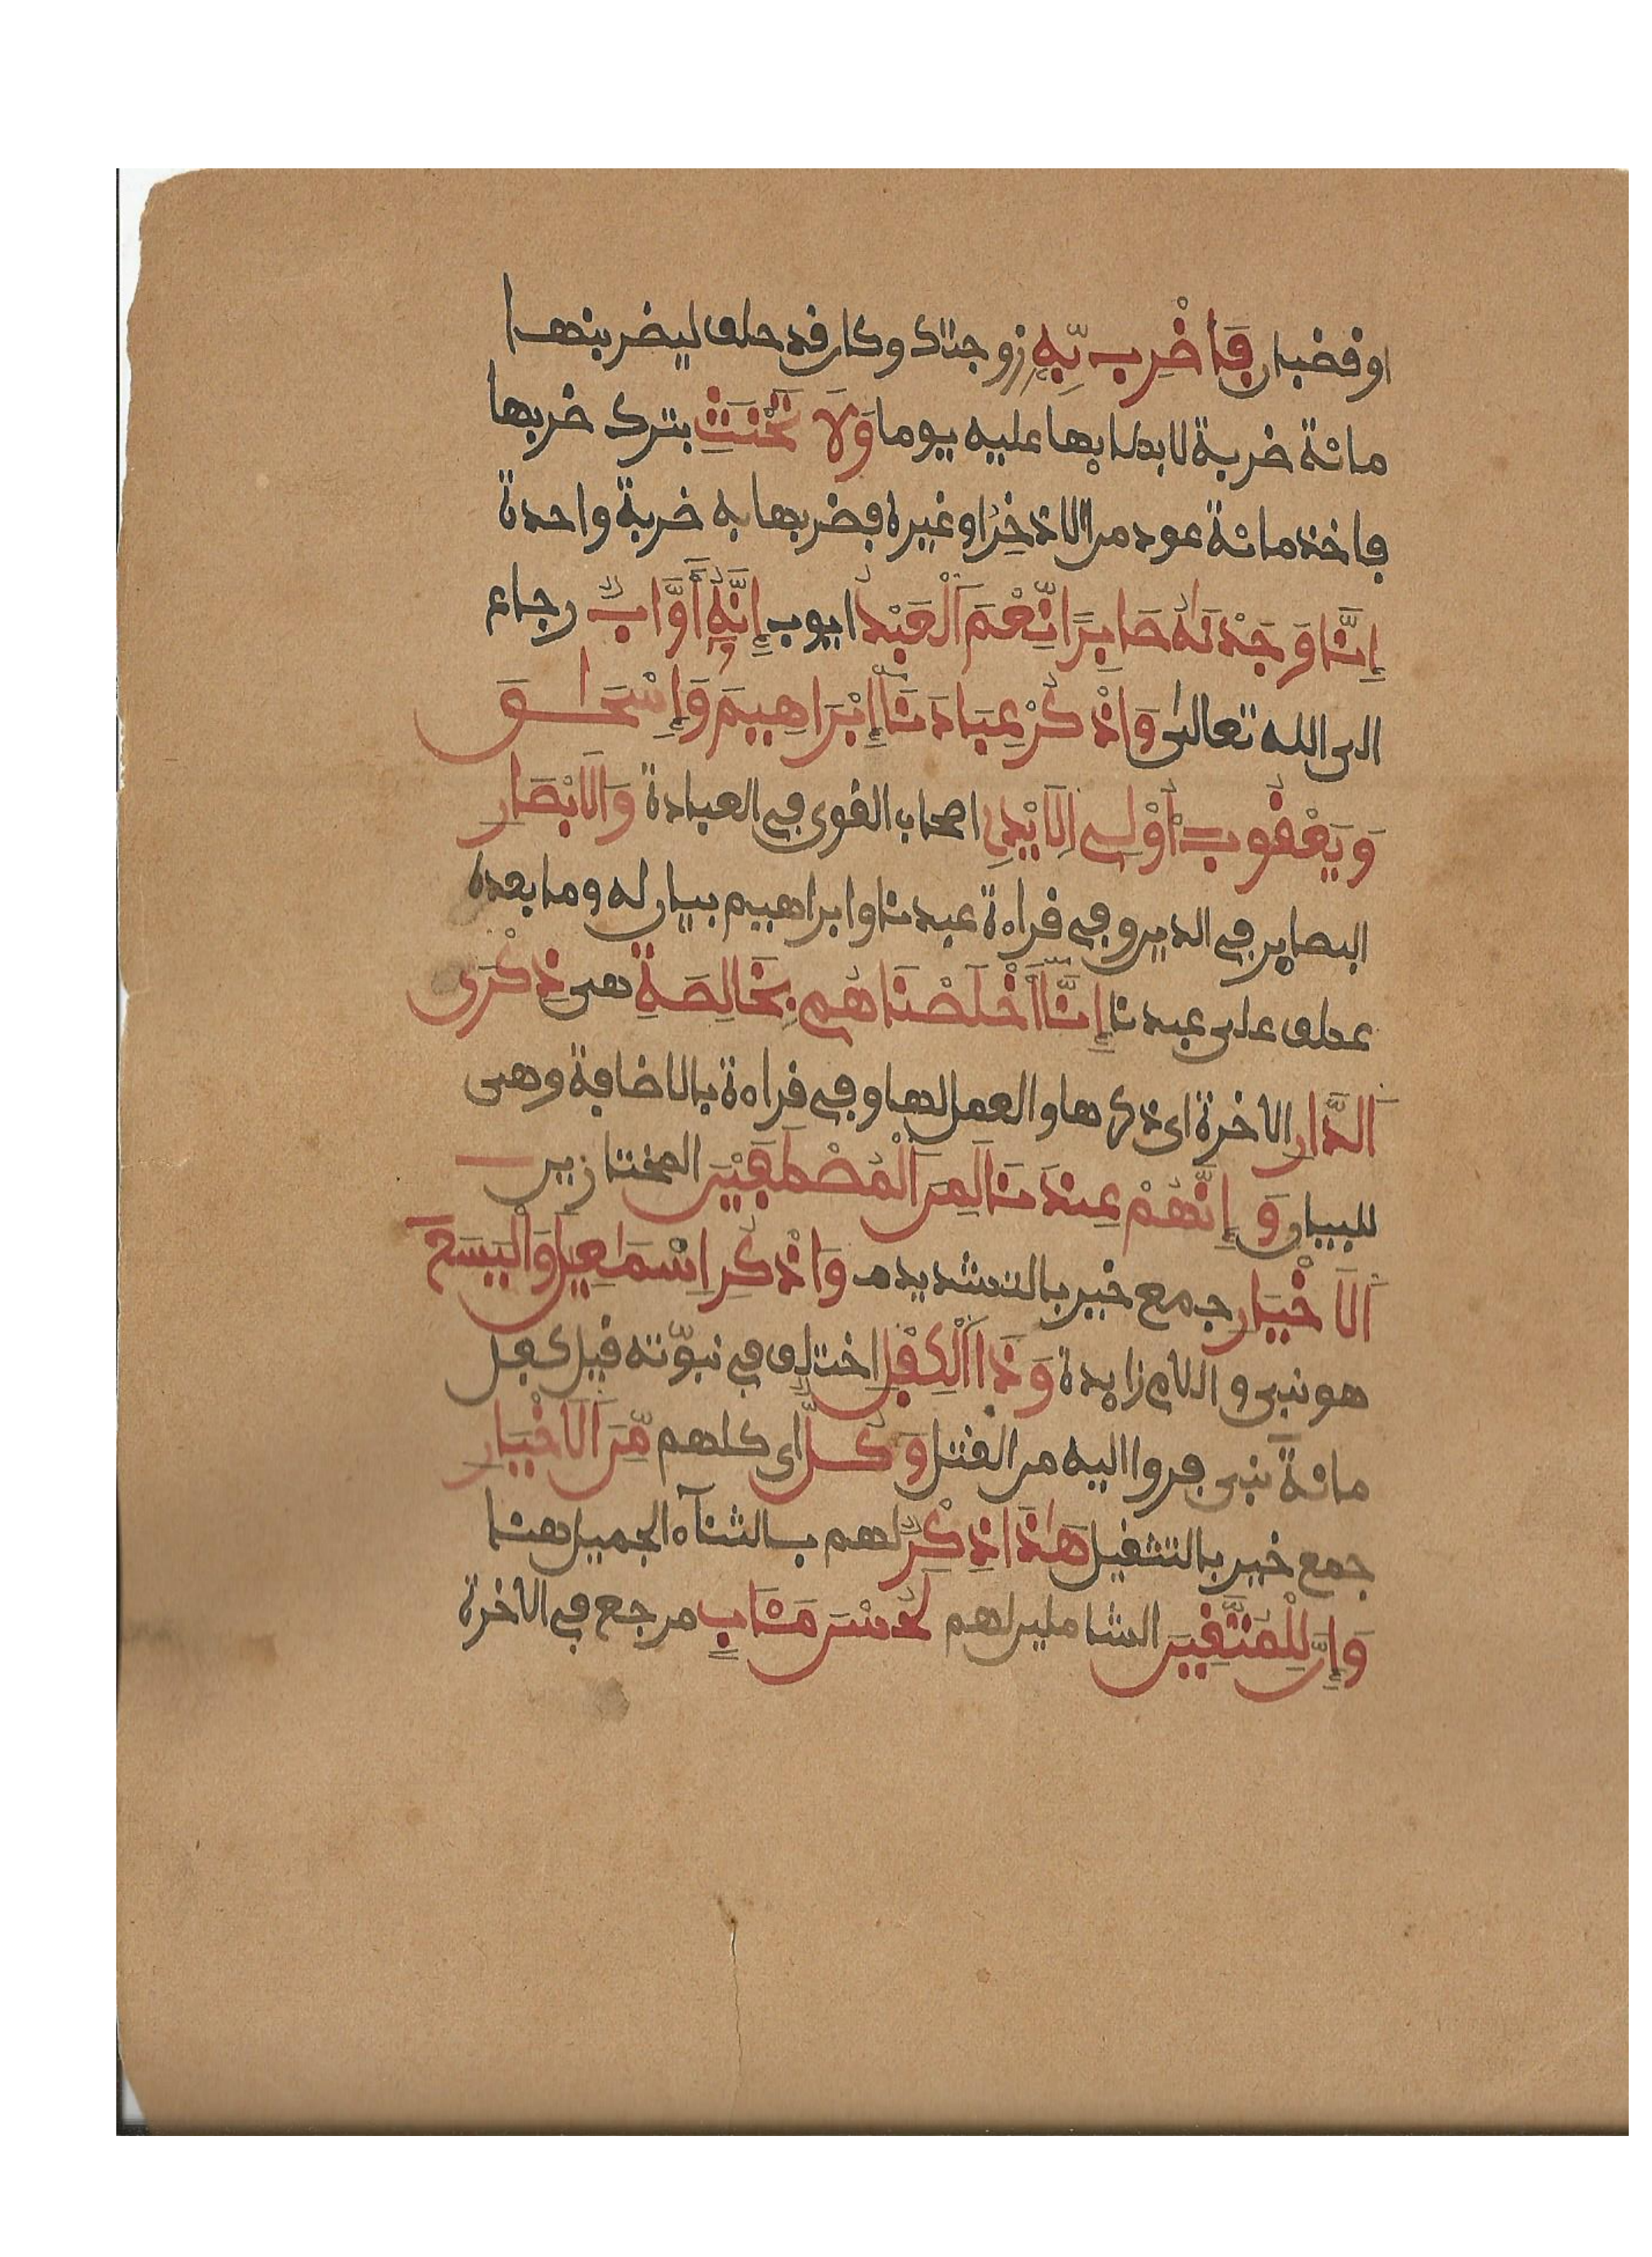 او قضبان فَاضْرِب بِّهِ زوجتك وكان قد حلف ليضربنها
مائة ضربة لابطائها عليه يوما وَلَا تَحْنَثْ بترك ضربها
فاخذ مائة عود من الاذخر او غيره فضربها به ضربة واحدة
إِنَّا وَجَدْنَٰهُ صَابِرًا نِّعْمَ اَلْعَبْدُ ايوب إِنَّهُۥ أَوَّابٌ رجاع
الى الله تعالى وَاذْكُرْ عِبَادَنَا إِبْرَاهِيمَ وَإِسْحَاقَ
وَيَعْقُوبَ أُوْلِے اِلَايْدِے اصحاب القوى في العبادة وَالَابْصَارِ
البصاير في الدين وفي قراءة عبدنا وابراهيم بيان له وما بعده
عطف على عبدنا إِنَّا أَخْلَصْنَاهُم بِخَالِصَةِ هى ذِكْرَى
اَلدَّارِ الاخرة اى ذكرها والعمل لها وفي قراءة بالاضافة وهى
للبيان وَإِنَّهُمْ عِندَنَا لَمِنَ اَلْمُصْطَفَيْنَ المختارين
اَلَاخْيَارِ جمع خير بالتشديد وَاذْكُرِ اِسْمَٰعِيلَ وَالْيَسَعَ
هو نبى واللام زايدة وَذَا اَلْكِفْلِ اختلف في نبوّته قيل كفل
مائة نبى فروا اليه من القتل وَكُلٌّ اى كلهم مِّنَ اَلَاخْيَارِ
جمع خير بالتثقيل هَٰذَا ذِكْرٌ لهم بالثناء الجميل هنا
وَإِنَّ لِلْمُتَّقِينَ الشاملين لهم لَحُسْنَ مَـَٔابٍ مرجع في الاخرة